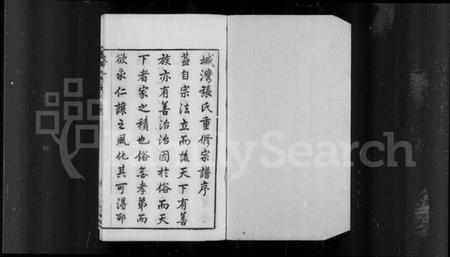 城灣張氏重修宗譜序
蓋自宗法立而後天下有善
族亦有善治治固於俗而天
下者家之積也俗無孝弟而
欲求仁讓之風化其可得耶
FamilySearch